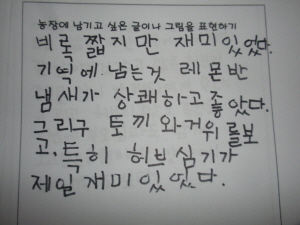 농장에 남기고 싶은 글이나 그림을 표현하기
비록 짧지만 재미있었다.
기억에 남는것 레몬반
냄새가 상쾌하고 좋았다.
그리구 토끼와거위를보
고, 특히 허브심기가
제일 재미있었다.